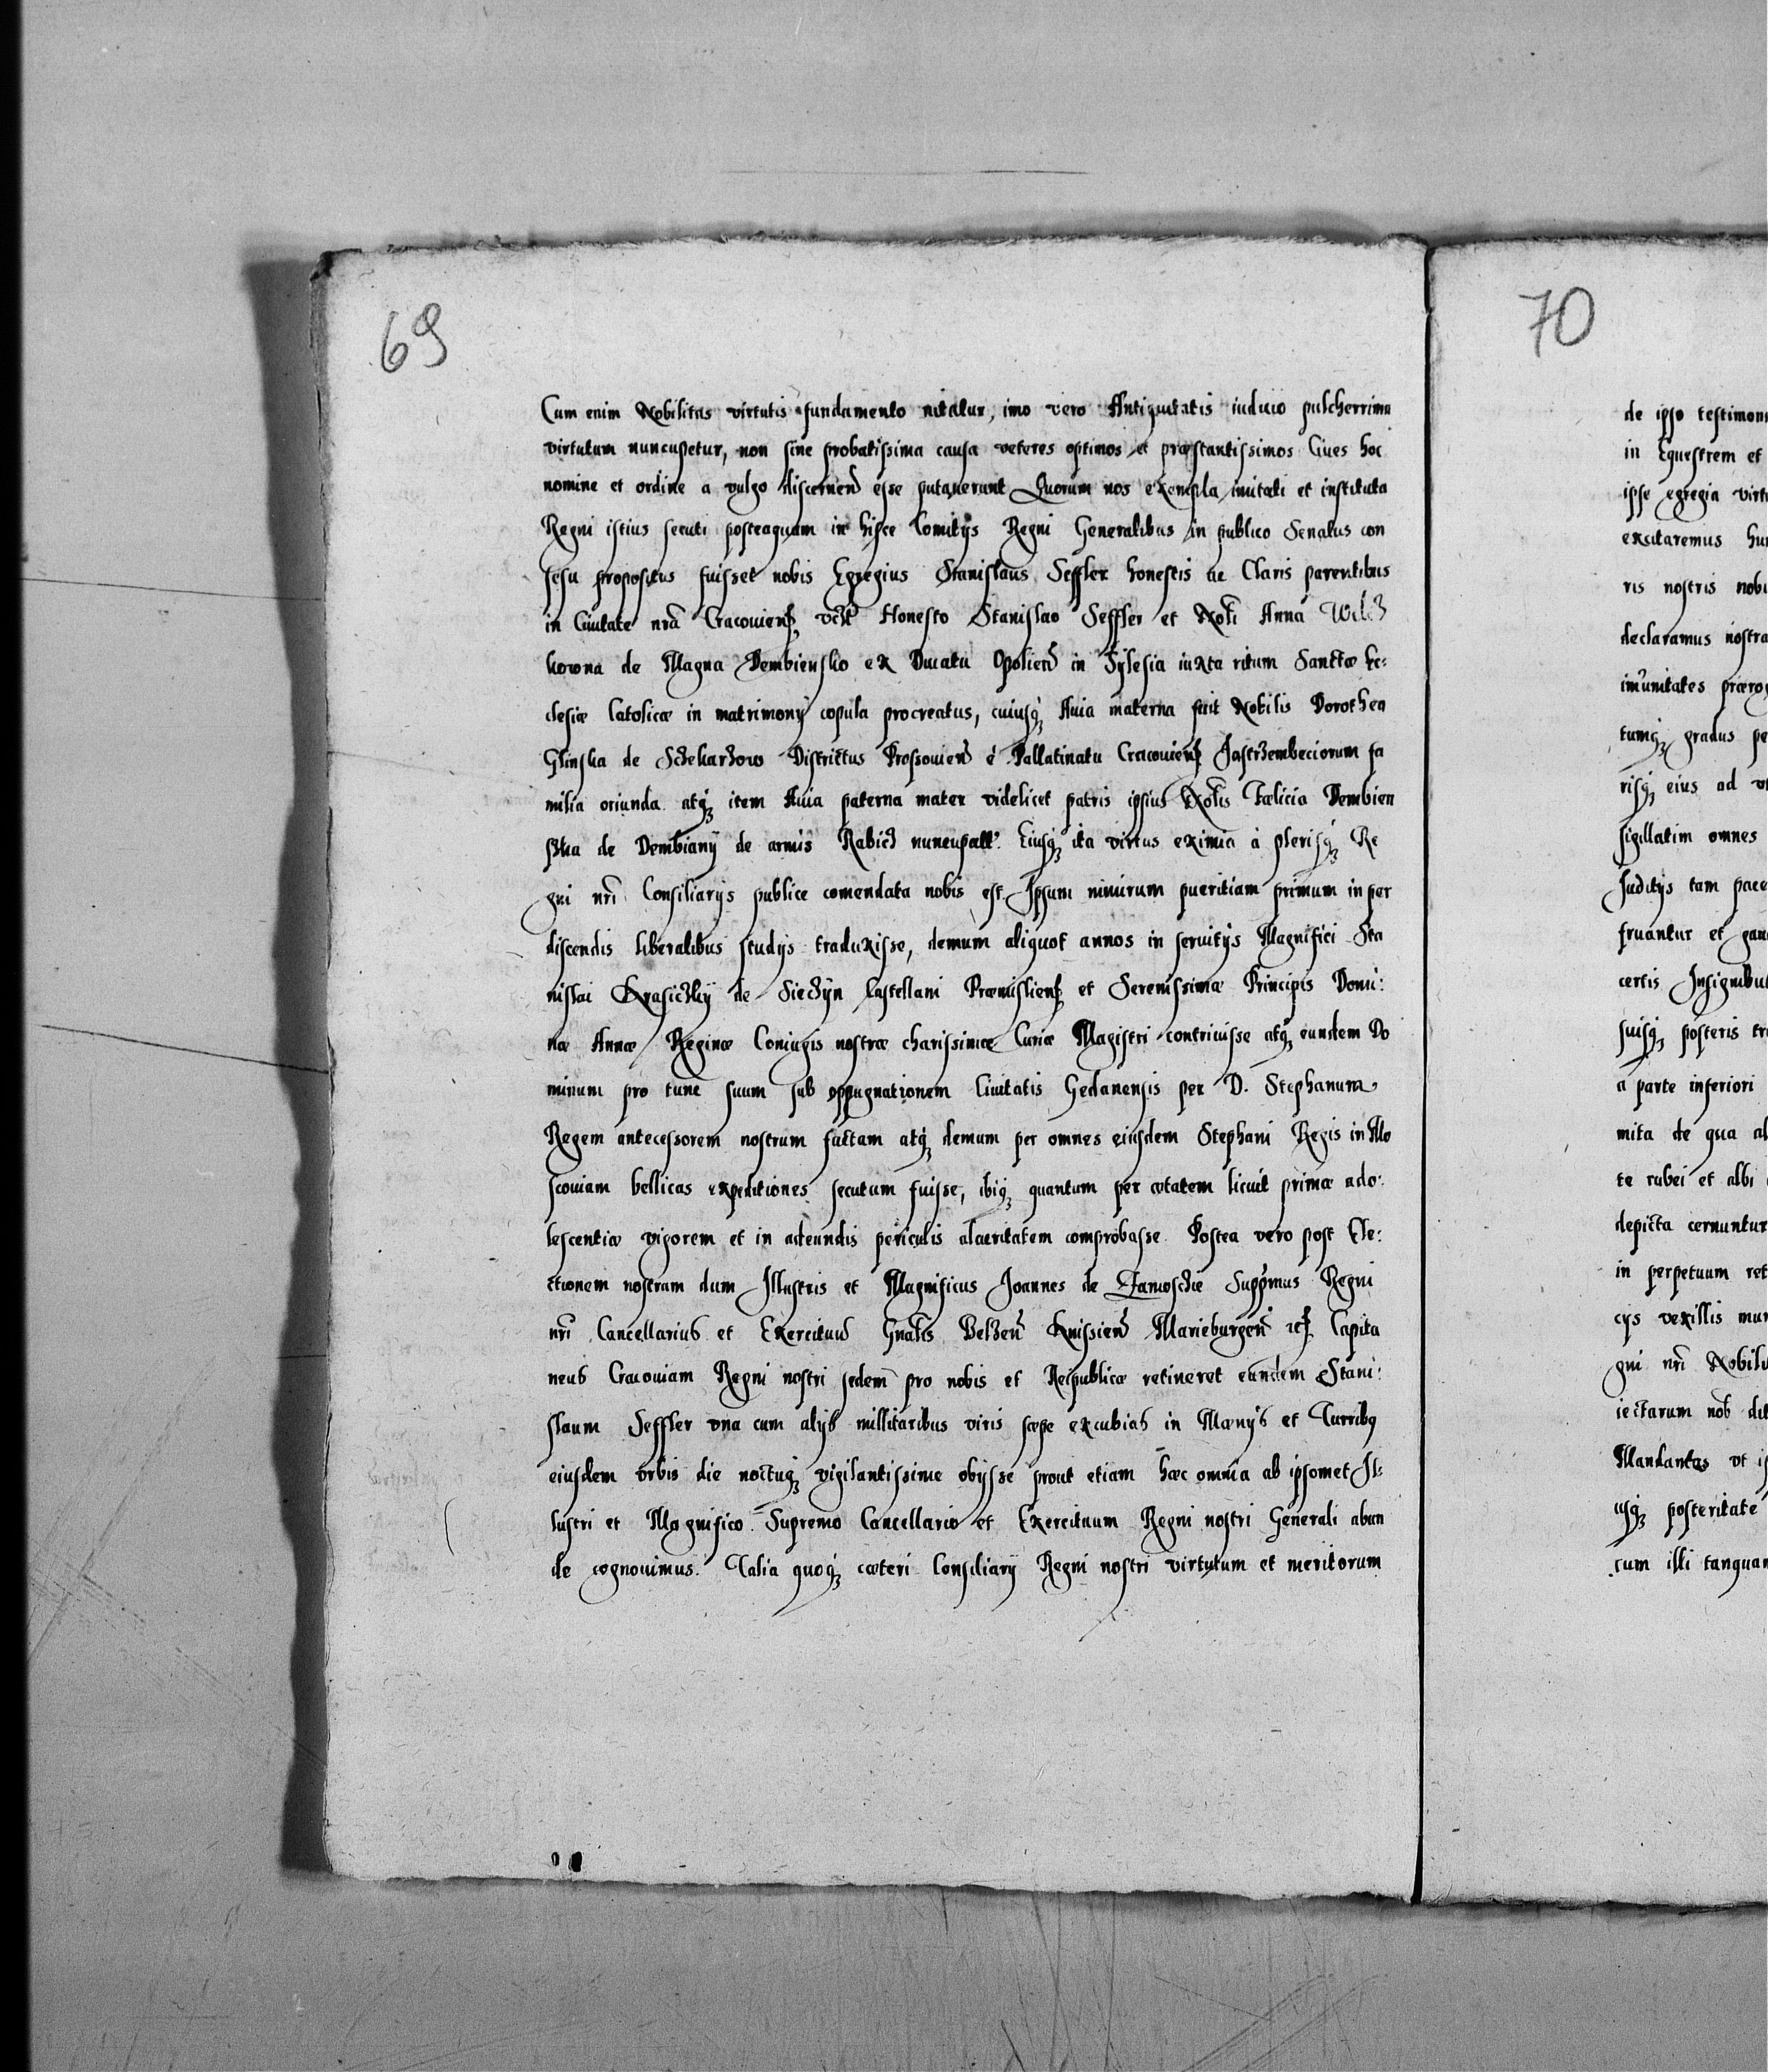 69
Cum enim Nobilitas virtutis fundamento nitatur, imo vero Antiquitatis iudicio pulcherrima
virtutum nuncupetur, non sine probatissima causa veteres optimos et præstantissimos Ciues hoc
nomine et ordine a vulgo discernend esse putauerunt Quorum nos exempla imitati et instituta
Regni istius secuti posteaquam in hisce Comitijs Regni Generalibus in publico Senatus con
sesu propositus fuisset nobis Egregius Stanislaus Seffler honestis ac Claris parentibus
in Ciuitate nrã Cracouien Honesto Stanislao Seffler et Nobli Anna Wilcz
kowna de Magna Dembiensko ex Ducatu Opolien in Sylesia iuxta ritum Sanctæ Ec:
clesiæ Catolicæ in matrimonÿ copula procreatus, cuiusq; Auia materna fuit Nobilis Dorothea
Glinska de Sczekarzow Districtus Prossouien è Pallatinatu Cracouien Jastrzembeciorum fa
milia oriunda atq; item Auia paterna mater videlicet patris ipsius Nobilis Fælicia Dembien
ska de Dembiany de armis Rabicz nuncupatt. Eiusq; ita virtus eximia à plerisq; Re
gni nrĩ Consiliarÿs publice comendata nobis est. Ipsum nimirum pueritiam primum in per
discendis liberalibus studÿs traduxisse, demum aliquot annos in seruitÿs Magnifici Sta
nislai Krasiczkÿ de Sieczÿn Castellani Præmislien et Serenissimæ Principis Domi:
næ Annæ Reginæ Coniugis nostræ charissimæ Curiæ Magistri contriuisse atq; eundem Do
minum pro tunc suum sub oppugnationem Ciuitatis Gedanensis per D. Stephanum
Regem antecessorem nostrum factam atq; demum per omnes eiusdem Stephani Regis in Mo
scouiam bellicas expeditiones secutum fuisse, ibiq; quantum per ætatem licuit primæ ado:
lescentiæ vigorem et in adeundis periculis alacritatem comprobasse. Postea vero post Ele:
ctionem nostram dum Illustris et Magnificus Joannes de Zamoscie Suppmus Regni
nrĩ Cancellarius et Exercituũ Gnalis Belzeñ Knissieñ Marieburgeñ etc Capita
neus Cracouiam Regni nostri sedem pro nobis et Reipublicæ retineret eundem Stani:
slaum Seffler vna cum alÿs millitaribus viris sæpe excubias in Mœnÿs et Turribq
eiusdem vrbis die noctuq; vigilantissime obÿsse prout etiam hæc omnia ab ipsomet Il:
lustri et Magnifico Supremo Cancellario et Exercituum Regni nostri Generali abun
de cognouimus. Talia quoq; cæteri Consiliarÿ Regni nostri virtutum et meritorum
70
de ipso testimon
in Equestrem et
ipse egregia virt
excitaremus
ris nostris nobi
declaramus nostra
imunitates prærog
tumq; gradus pe
risq; eius ad
sigillatim omnes
Juditÿs tam pace
fruantur et gau
certis Insignibus
suisq; posteris tr
a parte inferiori
mita de qua al
te rubei et albi
depicta cernuntur
in perpetuum ret
cÿs vexillis mun
gni nrĩ Nobili
iectarum nob dit
Mandantes vt ip
usq; posteritate
cum illi tanquam